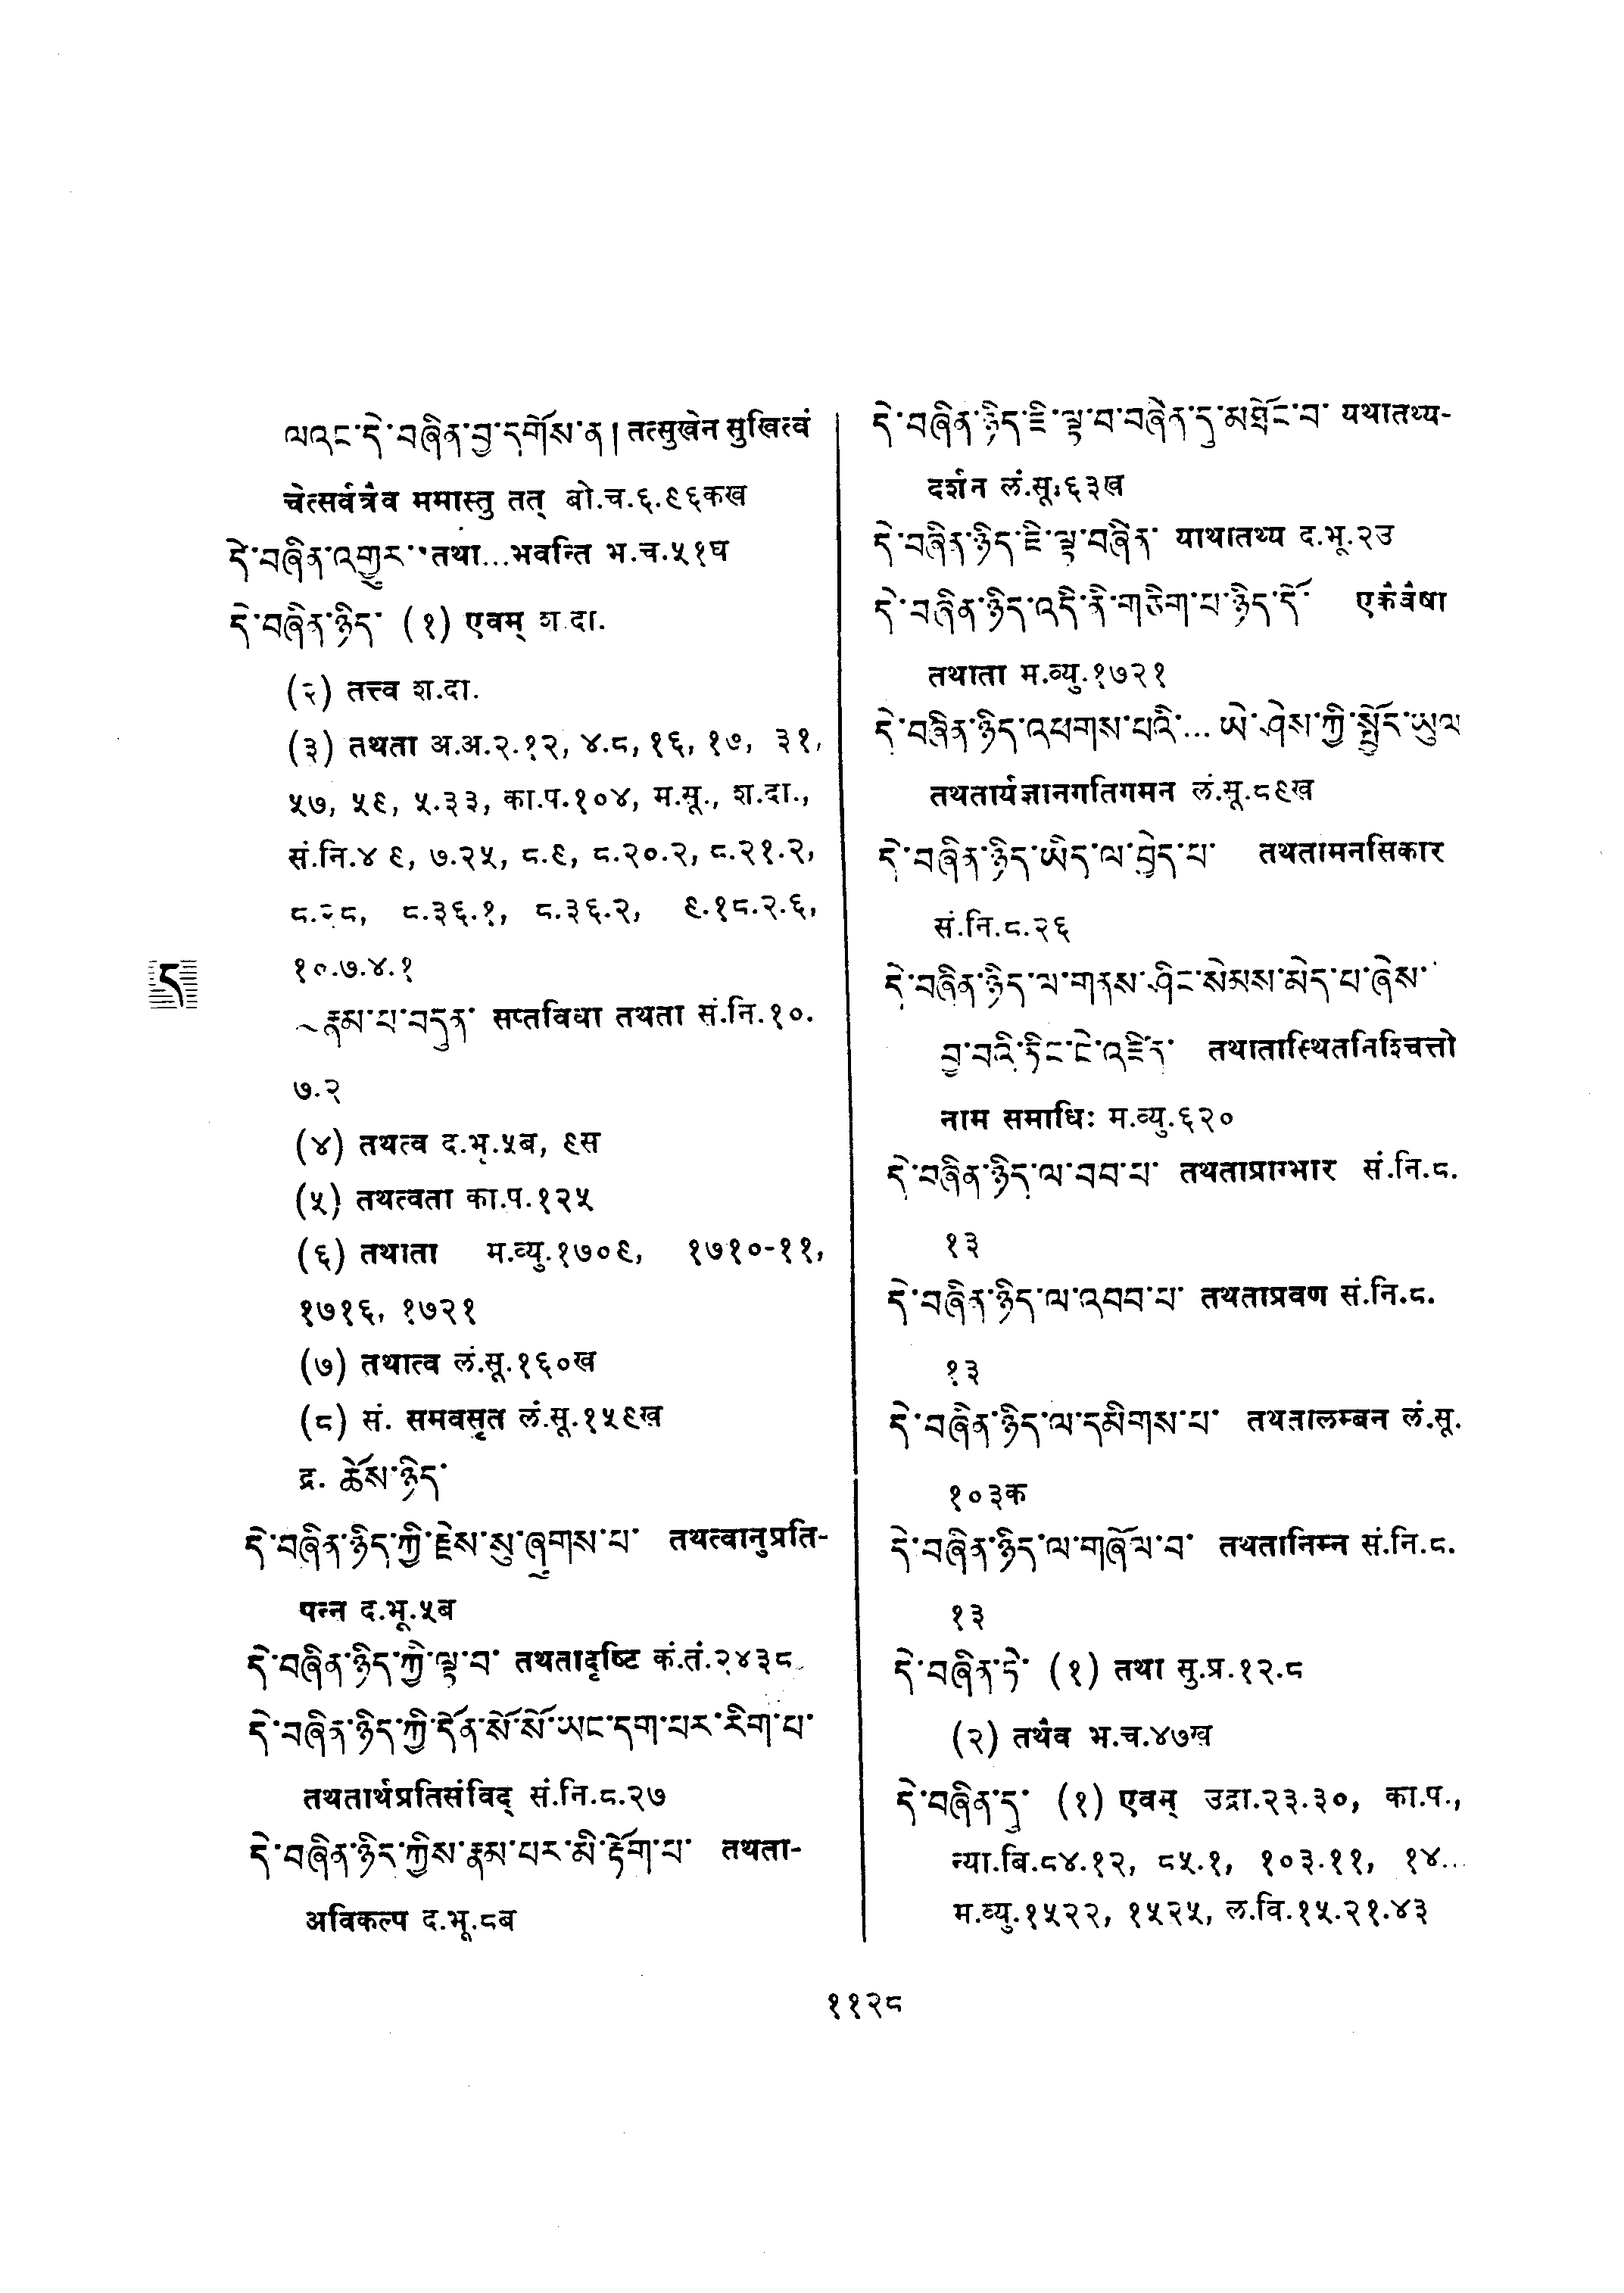 ལའང་དེ་བཞིན་བྱ་དགོས་ན། तत्सुखेन सुखित्वं
चेत्सर्वत्रैव ममास्तु तत् बो.च.६.९६कख
དེ་བཞིན་འགྱུར་ तथा...भवन्ति भ.च.५१घ
དེ་བཞིན་ཉིད་ (१) एवम् श.दा.
(२) तत्त्व श.दा.
(३) तथता अ.अ.२.१२, ४.८, १६, १७, ३१,
५७, ५९, ५.३३, का.प.१०४, म.सू., श.दा.,
सं.नि.४ ९, ७.२५, ८.९, ८.२०.२, ८.२१.२,
८.२८, ८.३६.१, ८.३६.२, ९.१८.२.६,
१०.७.४.१
ད
~རྣམ་པ་བདུན་ सप्तविधा तथता सं.नि.१०.
७.२
(४) तथत्व द.भू.५ब, ९स
(५) तथत्वता का.प.१२५
(६) तथाता म.व्यु.१७०९, १७१०-११,
१७१६, १७२१
(७) तथात्व लं.सू.१६०ख
(८) सं. समवसृत लं.सू.१५९ख
द्र. ཆོས་ཉིད་
དེ་བཞིན་ཉིད་ཀྱི་རྗེས་སུ་ཞུགས་པ་ तथत्वानुप्रति-
पन्न द.भू.५ब
དེ་བཞིན་ཉིད་ཀྱི་ལྟ་བ་ तथतादृष्टि कं.तं.२४३८
དེ་བཞིན་ཉིད་ཀྱི་དོན་སོ་སོ་ཡང་དག་པར་རིག་པ་
तथतार्थप्रतिसंविद् सं.नि.८.२७
དེ་བཞིན་ཉིད་ཀྱིས་རྣམ་པར་མི་རྟོག་པ་ तथता-
अविकल्प द.भू.८ब
དེ་བཞིན་ཉིད་ཇི་ལྟ་བ་བཞིན་དུ་མཐོང་བ་ यथातथ्य-
दर्शन लं.सू.६३ख
དེ་བཞིན་ཉིད་ཇི་ལྟ་བཞིན་ याथातथ्य द.भू.२उ
དེ་བཞིན་ཉིད་འདི་ནི་གཅིག་པ་ཉིད་དོ་ एकैवैषा
तथाता म.व्यु.१७२१
དེ་བཞིན་ཉིད་འཕགས་པའི་... ཡེ་ཤེས་ཀྱི་སྤྱོད་ཡུལ
तथतार्यज्ञानगतिगमन लं.सू.८९ख
དེ་བཞིན་ཉིད་ཡིད་ལ་བྱེད་པ་ तथतामनसिकार
सं.नि.८.२६
དེ་བཞིན་ཉིད་ལ་གནས་ཤིང་སེམས་མེད་པ་ཞེས་
བྱ་བའི་ཏིང་ངེ་འཛིན་ तथातास्थितनिश्चित्तो
नाम समाधिः म.व्यु.६२०
དེ་བཞིན་ཉིད་ལ་བབ་པ་ तथताप्राग्भार सं.नि.८.
१३
དེ་བཞིན་ཉིད་ལ་འབབ་པ་ तथताप्रवण सं.नि.८.
१३
དེ་བཞིན་ཉིད་ལ་དམིགས་པ་ तथतालम्बन लं.सू.
१०३क
དེ་བཞིན་ཉིད་ལ་གཞོལ་བ་ तथतानिम्न सं.नि.८.
१३
དེ་བཞིན་ཏེ་ (१) तथा सु.प्र.१२.८
(२) तथैव भ.च.४७ख
དེ་བཞིན་དུ་ (१) एवम् उद्रा.२३.३०, का.प.,
न्या.बि.८४.१२, ८५.१, १०३.११, १४...
म.व्यु.१५२२, १५२५, ल.वि.१५.२१.४३
११२८